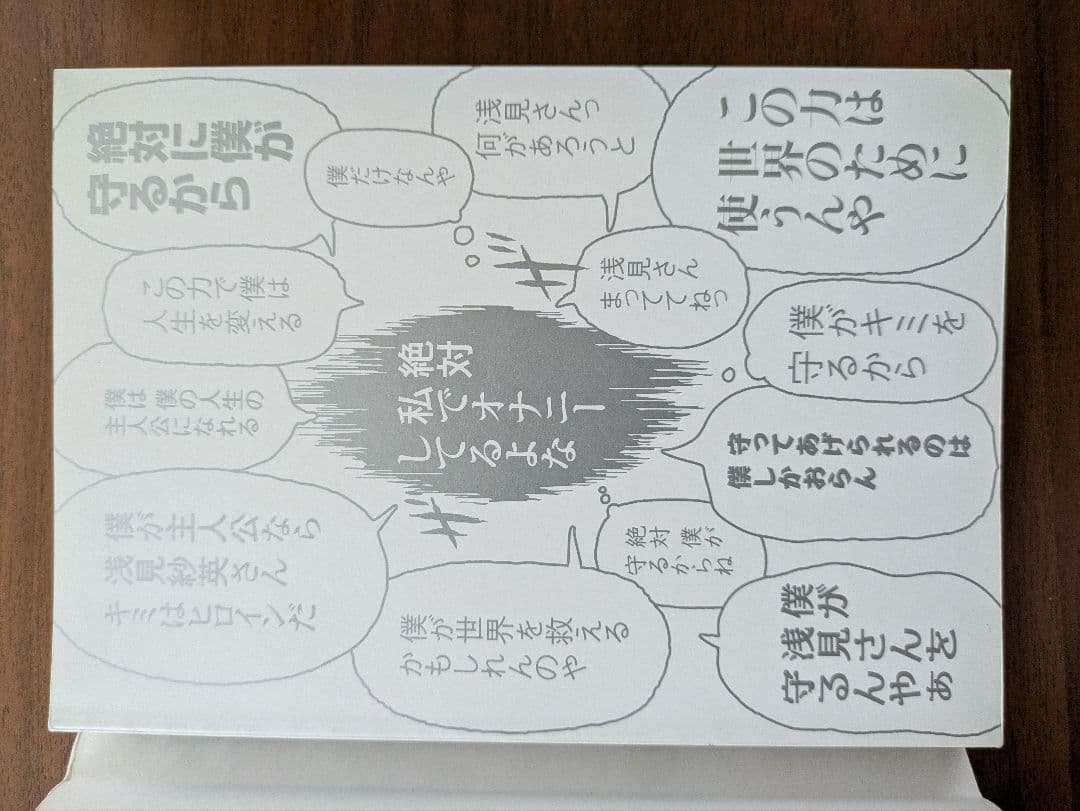 絶対に僕が
守るから
僕だけなんや
浅見さんっ
何があろうと
この力は
世界のために
使うんや
この力で僕は
人生を変える
浅見さん
まっててねっ
僕がキミを
守るから
僕は僕の人生の
主人公になれる
絶対
私でオナニー
してるよな
守ってあげられるのは
僕しかおらん
僕が主人公なら
浅見紗英さん
キミはヒロインだ
絶対僕が
守るからね
僕が世界を救える
かもしれんのや
僕が
浅見さんを
守るんやぁ